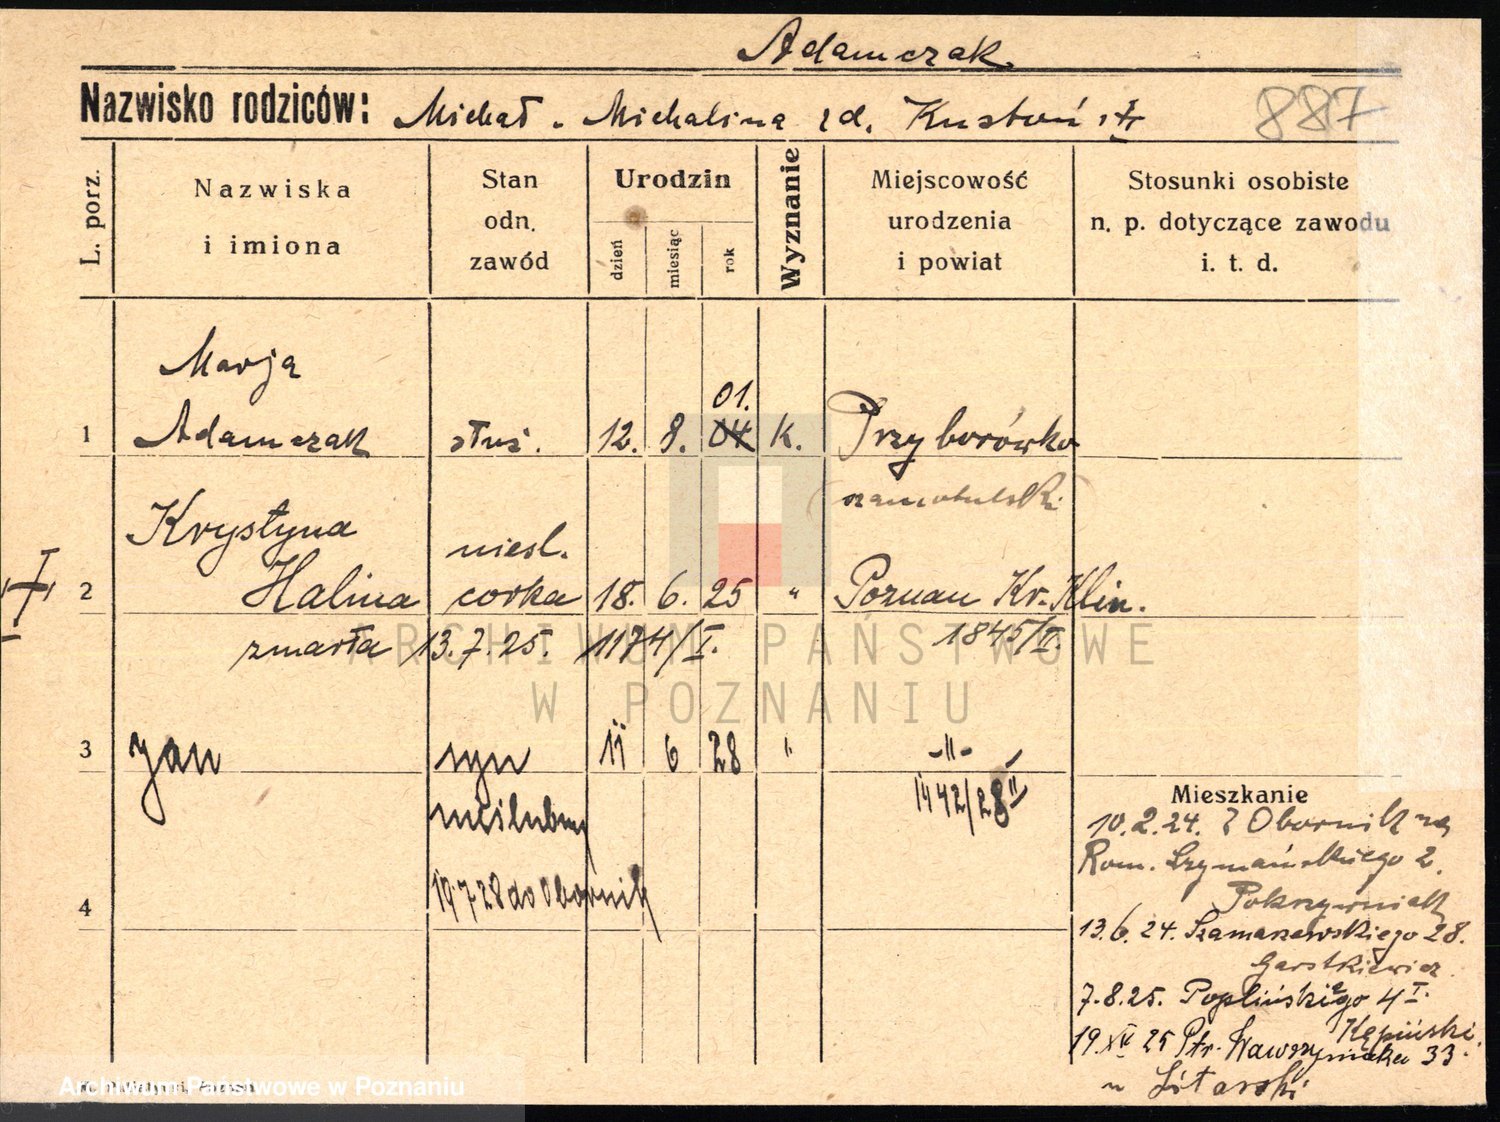 Adamczak
Nazwisko rodziców: Michał - Michalina zd. Kustoń
887
L. porz.
Nazwiska
i imiona
Stan
odn.
zawód
Urodzin
dzień
miesiąc
rok
Wyznanie
Miejscowość
urodzenia
i powiat
Stosunki osobiste
n. p. dotyczące zawodu
i. t. d.
Marja
01.
1 Adamczak służ. 12. 8. 04 K. Przyborówko
szamotulski
Krystyna
niesl.
2 Halina corka 18. 6. 25 " Poznan Kr. Klin.
zmarła 13.7.25. 1174/I. 1845/II.
3 Jan syn 11 6 28 " -"-
nieślubny 1442/28 II
4 19.7.28 do Obornik
Mieszkanie
10.2.24. Z Obornik na
Rom. Szymańskiego 2.
Pokrzywniak
13.6.24. Szamarzewskiego 28.
Garstkiewicz
7.8.25. Poplińskiego 4 I.
Kępiński.
19.XII 25 Ptr. Wawrzyniaka 33.
u Litarski
ARCHIWUM PAŃSTWOWE
W POZNANIU
Archiwum Państwowe w Poznaniu